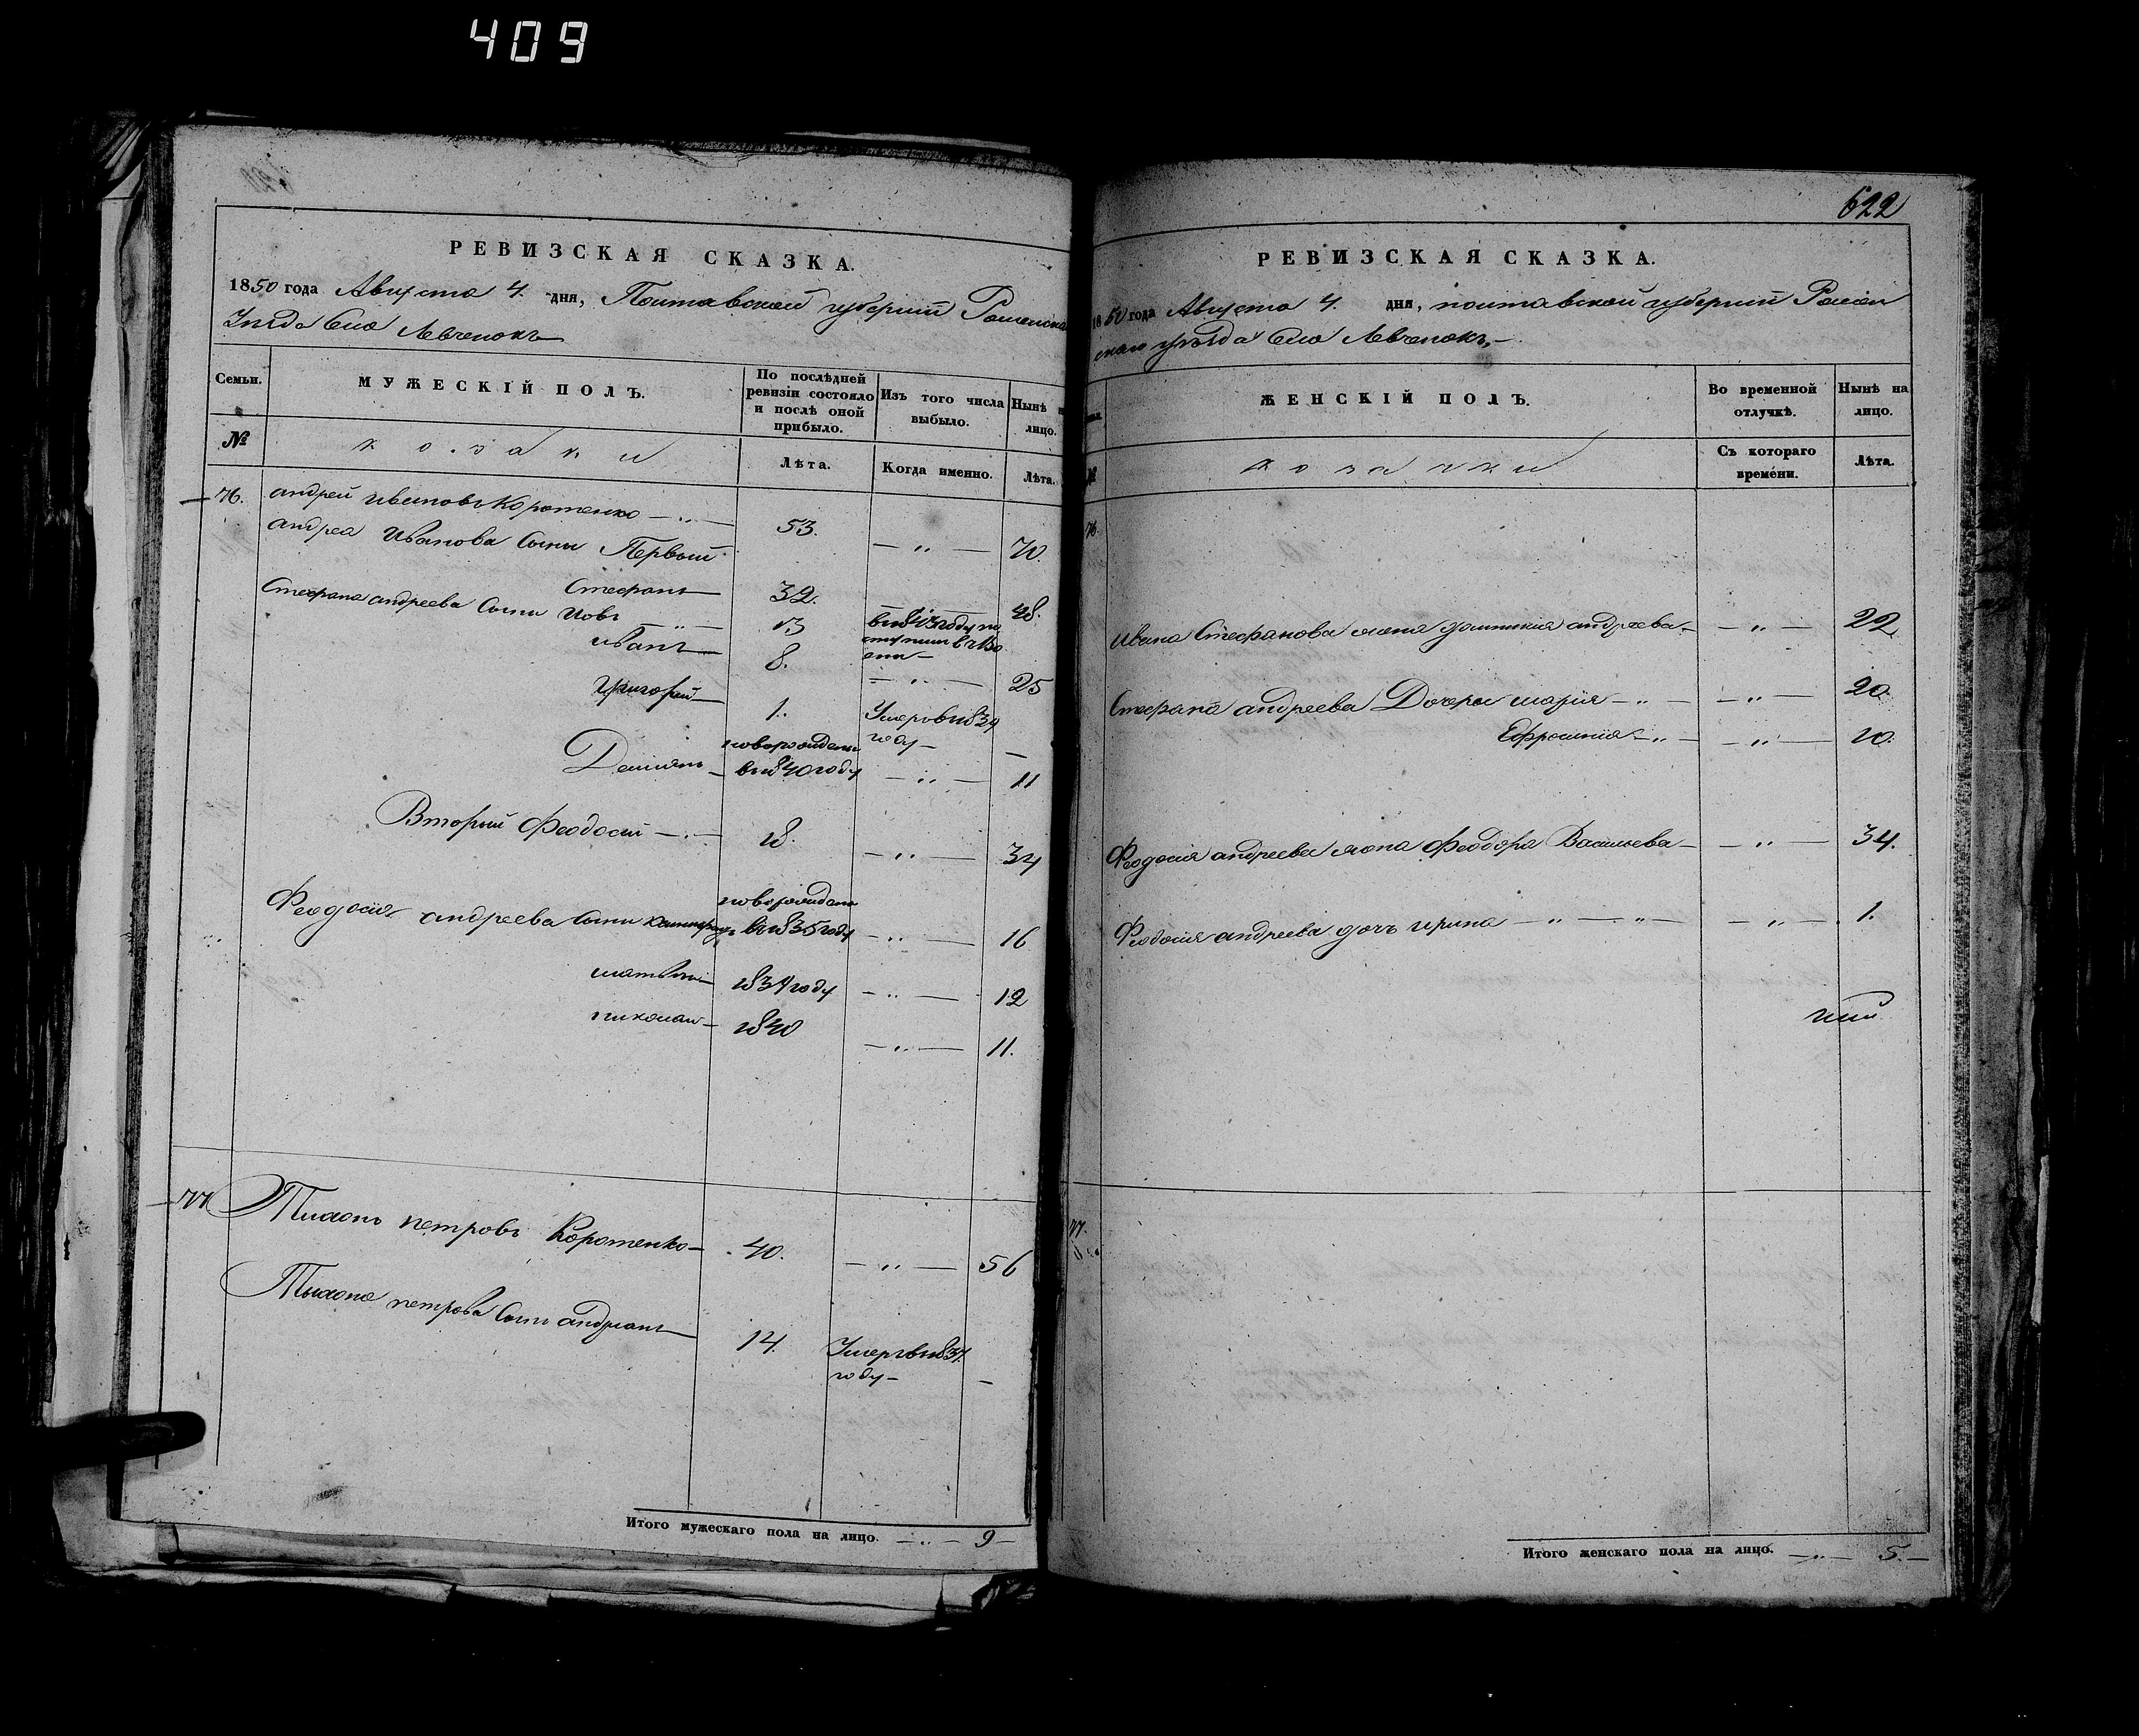 409
РЕВИЗСКАЯ СКАЗКА.
1850 года Августа 4. дня, Полтавской губернии Роменска
Уезда Села Левченокъ
Семьи.
МУЖЕСКІЙ ПОЛЪ.
По послѣдней ревизіи состояло и послѣ оной прибыло.
Изъ того числа выбыло.
Нынѣ лицо.
№
козаки
Лѣта.
Когда именно.
Лѣта.
76. андрей ивановъ Коротенко 53. 70.
андрея Иванова Сыны Первый
Стефанъ 32. 48.
Стефана андреева Сыны Иовъ 13 въ 1843 году по
иванъ 8. 25
григорий 1. Умеръ въ 1839 году
Демианъ новорожденъ въ 1840 году 11
Вторый Феодосий 18. 34
Феодосия андреева Сыны новорожденъ въ 1835 году 16
матвей 1839 году 12
николай 1840 11.
77 Тихонъ петровъ Коротенко 40. 56
Тихона петрова Сынъ андрианъ 14. Умеръ въ 1837. году
Итого мужескаго пола на лицо. 9
622
РЕВИЗСКАЯ СКАЗКА.
1850 года Августа 4. дня, полтавской губернии Ромен
скаго уезда Села Левченокъ
ЖЕНСКІЙ ПОЛЪ.
Во временной отлучкѣ.
Нынѣ на лицо.
№
козачки
Съ котораго времени.
Лѣта.
76.
Ивана Стефанова жена андреева 22
Стефана андреева Дочери мария 20.
Ефросиния 10.
Феодосия андреева жена Феодора Васильева 34.
Феодосия андреева дочь ирина 1.
77.
Итого женскаго пола на лицо. 5.